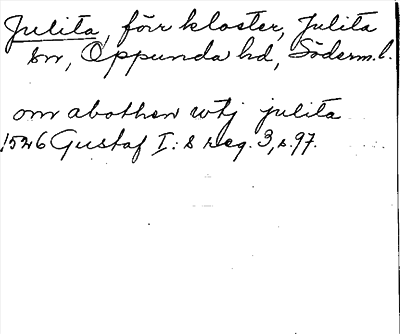 Julita, förr kloster, Julita
sn, Oppunda hd, Söderm.l.
om abothen wtj julita
1526 Gustaf I:s reg. 3, s. 97.